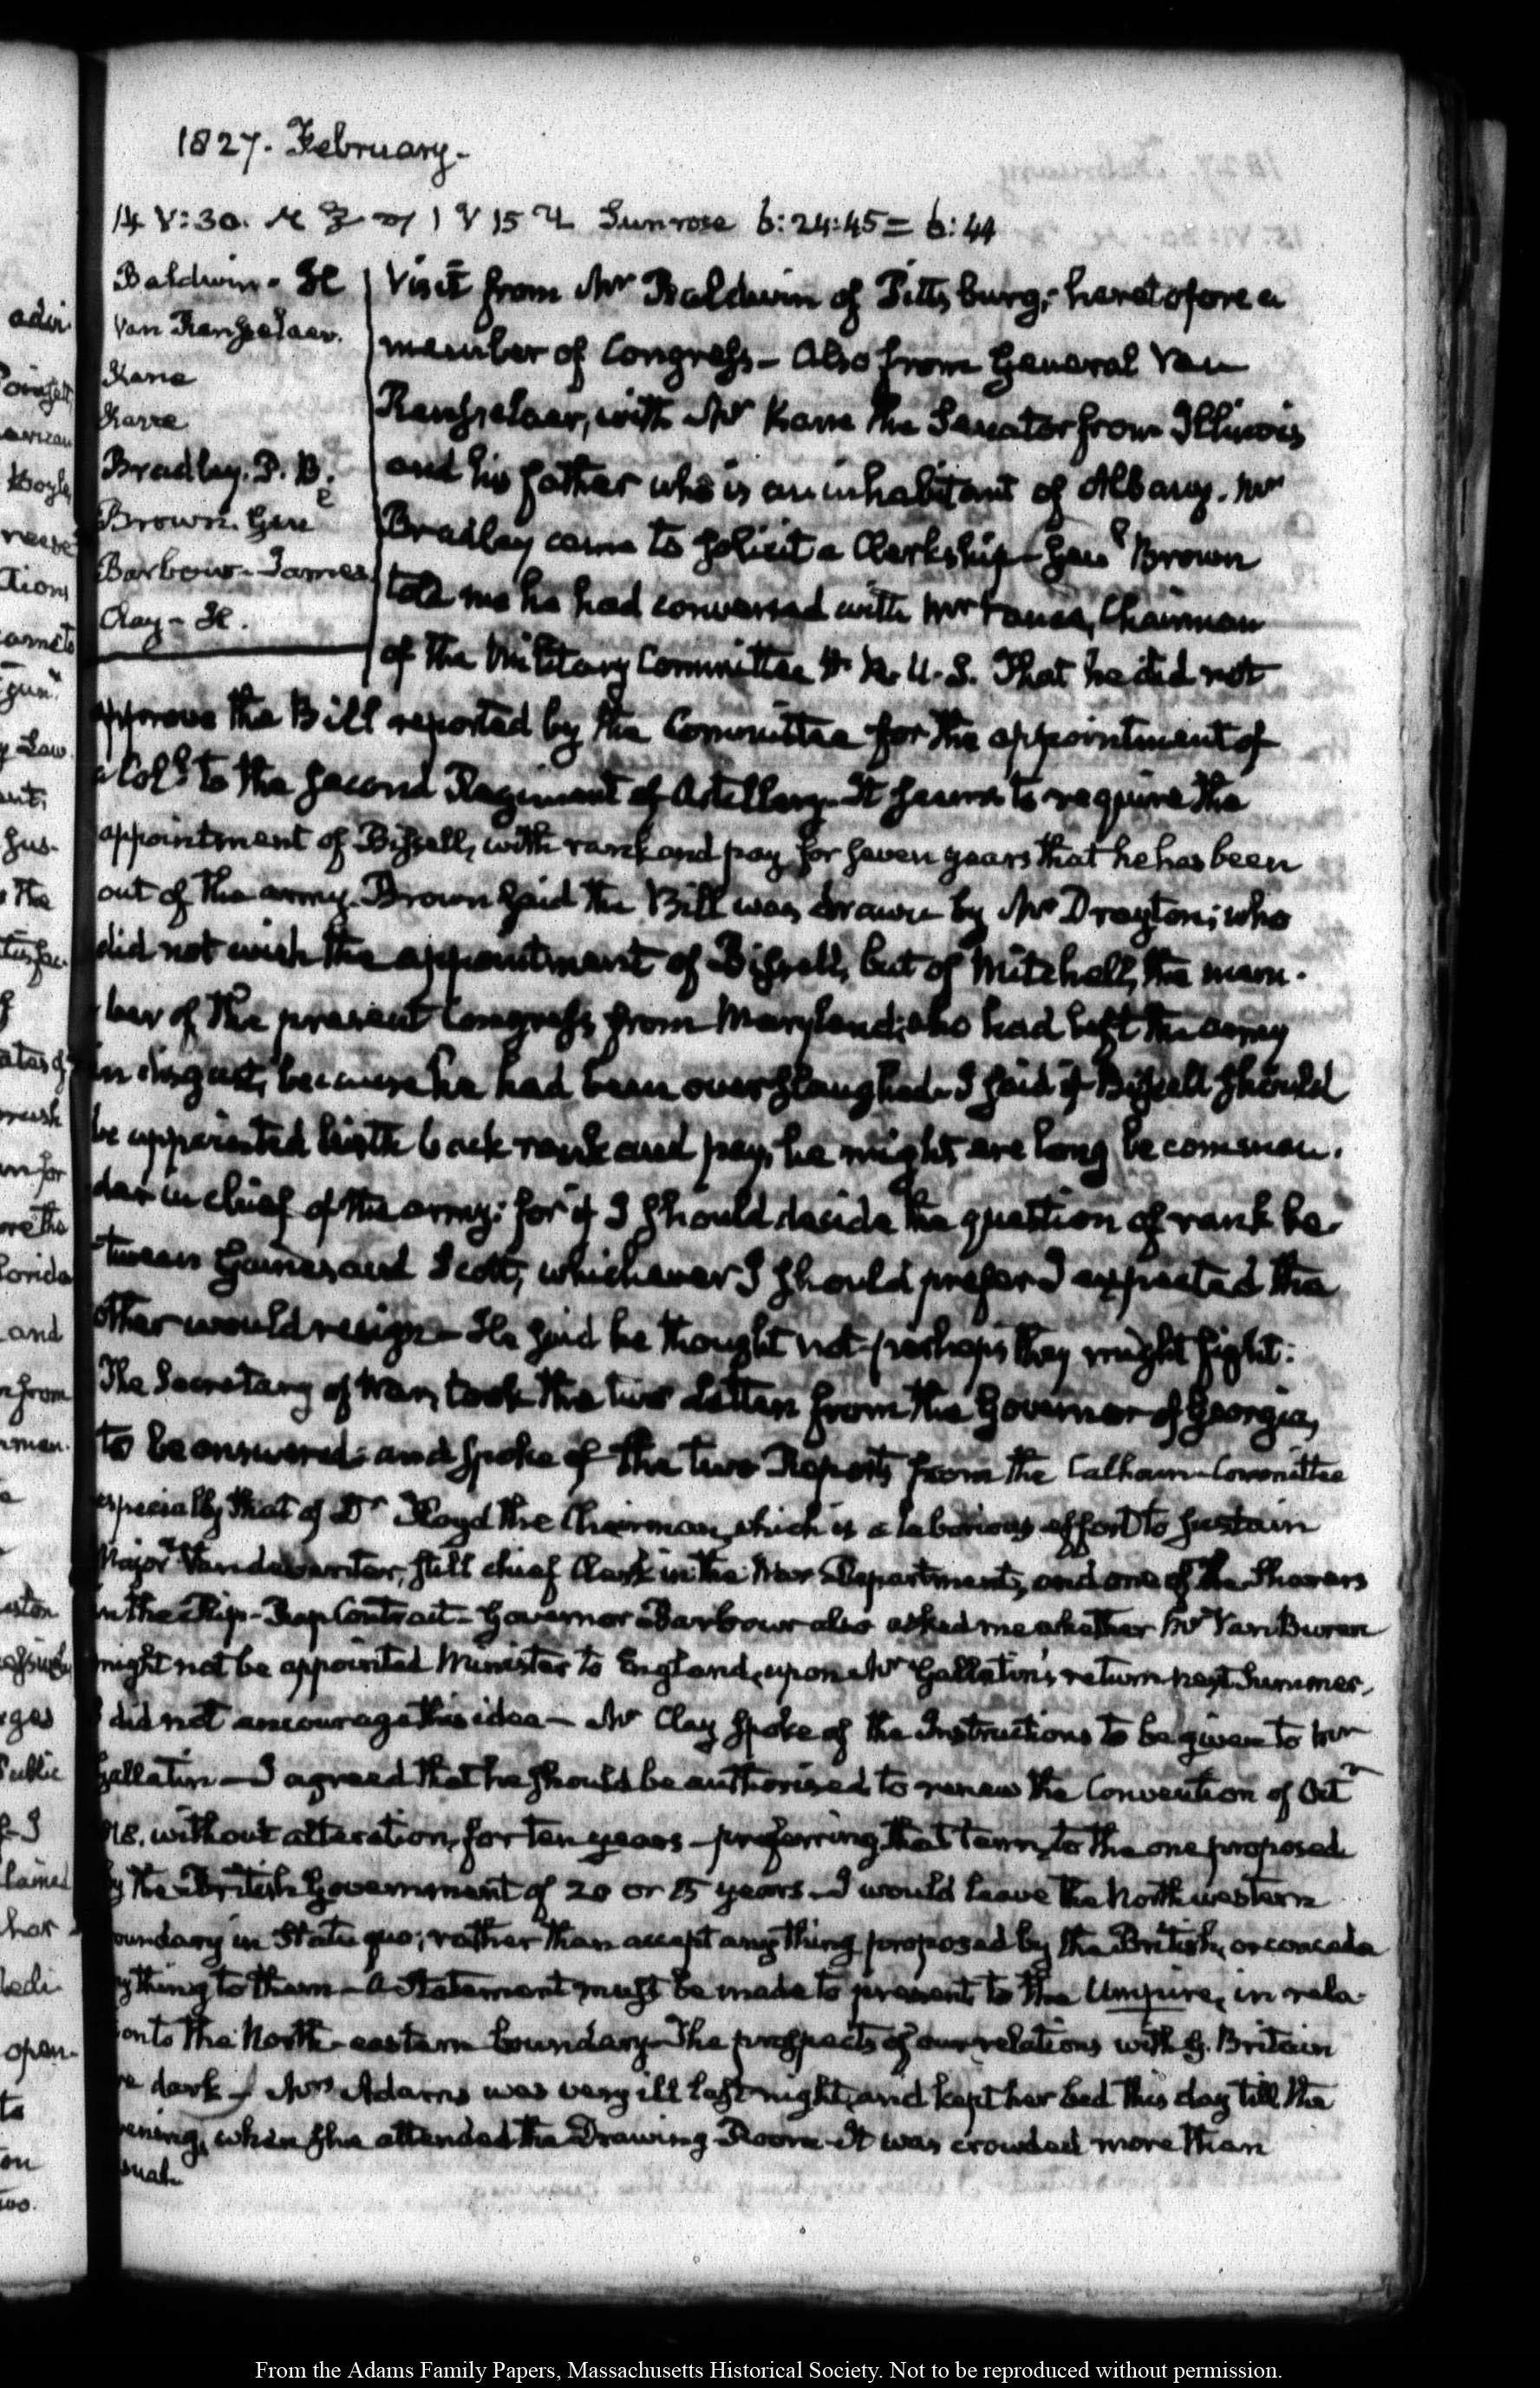 1827. February.
14 V:30. Sunrose 6:24:45 = 6:44
Baldwin. H
Van Rensselaer.
Kane
Kane
Bradley. P. B.
Brown. Genl
Barbour. James
Clay - H.
Visit from Mr Baldwin of Pittsburg, heretofore a
member of Congress - Also from General Van
Rensselaer, with Mr Kane the Senator from Illinois
and his father who is an inhabitant of Albany. Mr
Bradley came to solicit a Clerkship - Genl Brown
told me he had conversed with Mr Vance, Chairman
of the Military Committee H. R. U. S. That he did not
approve the Bill reported by the Committee for the appointment of
a Coll to the second Regiment of Artillery. It seems to require the
appointment of Bissell, with rank and pay for seven years that he has been
out of the army. Brown said the Bill was drawn by Mr Drayton; who
did not wish the appointment of Bissell, but of Mitchell, the mem-
ber of the present Congress from Maryland; who had left the army
in disgust, because he had been overslaughed. I said if Bissell should
be appointed with back rank and pay, he might ere long be comman-
der in chief of the army: for if I should decide the question of rank be-
tween Gaines and Scott, whichever I should prefer I expected the
other would resign - He said he thought not - perhaps they might fight.
The Secretary of War, took the two Letters from the Governor of Georgia,
to be answered: and spoke of the two Reports from the Calhoun Committee
especially that of Dr Floyd the Chairman, which is a laborious effort to sustain
Major Vandeventer, still chief Clerk in the War Department, and one of the Sharers
in the Rip-Rap Contract - Governor Barbour also asked me whether Mr Van Buren
might not be appointed Minister to England, upon Mr Gallatin's return next Summer,
I did not encourage this idea - Mr Clay spoke of the Instructions to be given to Mr
Gallatin - I agreed that he should be authorised to renew the Convention of Octr
1818. without alteration, for ten years - preferring that term, to the one proposed
by the British Government of 20 or 15 years - I would leave the North western
boundary in Statu quo; rather than accept any thing proposed by the British, or concede
any thing to them - A Statement must be made to present to the Umpire, in rela-
tion to the North-eastern boundary - The prospects of our relations with G. Britain
are dark - Mrs Adams was very ill last night, and kept her bed this day till the
evening, when she attended the Drawing Room - It was crowded more than
usual.
From the Adams Family Papers, Massachusetts Historical Society. Not to be reproduced without permission.